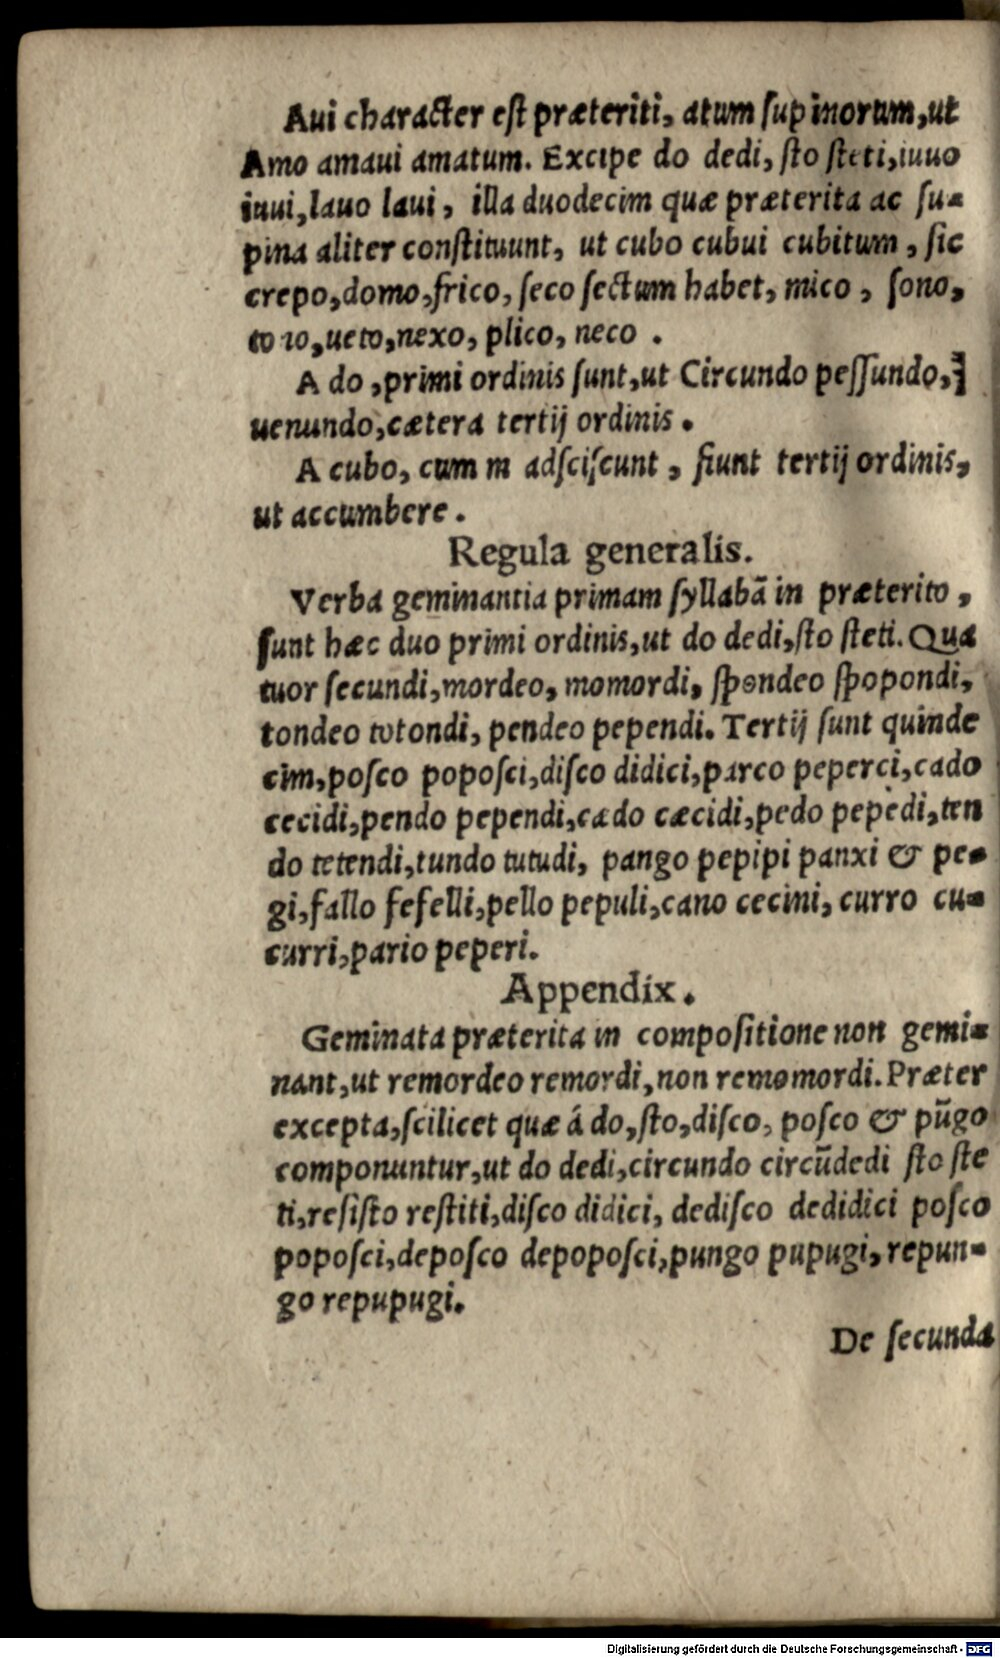 Aui character est præteriti, atum supinorum, ut
Amo amaui amatum. Excipe do dedi, sto steti, iuuo
iuui, lauo laui, illa duodecim quæ præterita ac su-
pina aliter constituunt, ut cubo cubui cubitum, sic
crepo, domo, frico, seco sectum habet, mico, sono,
tono, ueto, nexo, plico, neco.
A do, primi ordinis sunt, ut Circundo pessundo,
uenundo, cætera tertij ordinis.
A cubo, cum m adsciscunt, fiunt tertij ordinis,
ut accumbere.
Regula generalis.
Verba geminantia primam syllabã in præterito,
sunt hæc duo primi ordinis, ut do dedi, sto steti. Qua
tuor secundi, mordeo, momordi, spondeo spopondi,
tondeo totondi, pendeo pependi. Tertij sunt quinde
cim, posco poposci, disco didici, parco peperci, cado
cecidi, pendo pependi, cædo cæcidi, pedo pepèdi, ten
do tetendi, tundo tutudi, pango pepipi panxi & pe-
gi, fallo fefelli, pello pepuli, cano cecini, curro cu-
curri, pario peperi.
Appendix.
Geminata præterita in compositione non gemi-
nant, ut remordeo remordi, non remomordi. Præter
excepta, scilicet quæ á do, sto, disco, posco & pũgo
componuntur, ut do dedi, circundo circũdedi sto ste
ti, resisto restiti, disco didici, dedisco dedidici posco
poposci, deposco depoposci, pungo pupugi, repun-
go repupugi.
De secunda
Digitalisierung gefördert durch die Deutsche Forschungsgemeinschaft - DFG